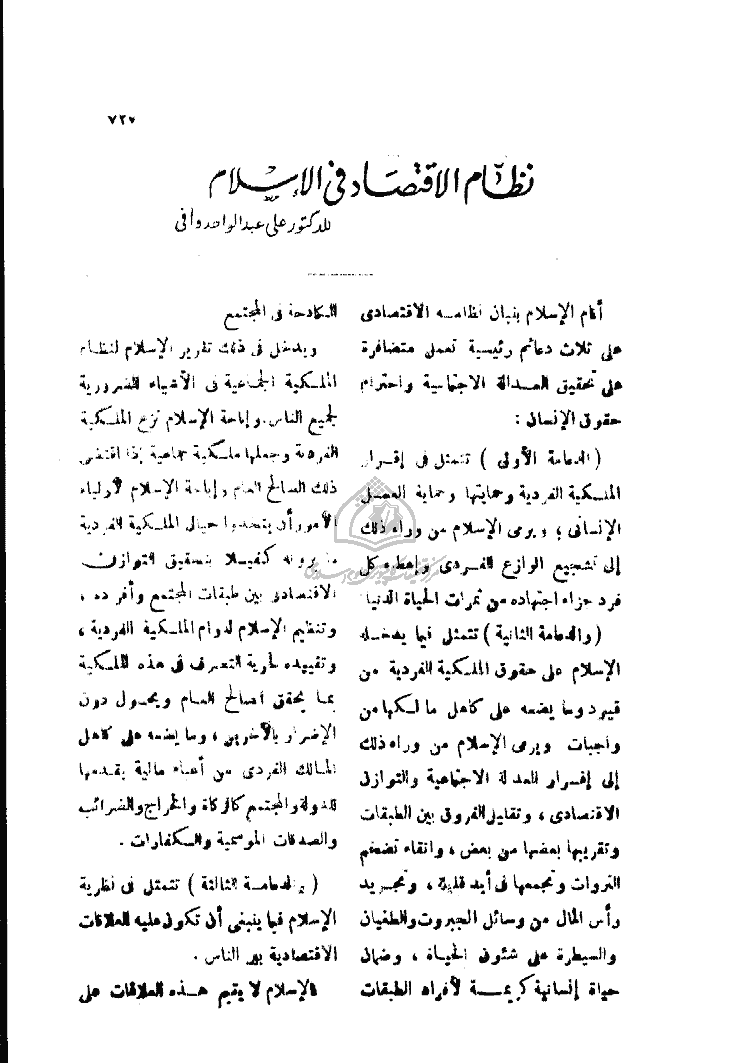 ٧٢٧
نظام الاقتصاد في الإسلام
للدكتور علي عبد الواحد وافي
أقام الإسلام بنيان نظامه الاقتصادى
على ثلاث دعائم رئيسية تعمل متضافرة
على تحقيق العدالة الاجتماعية واحترام
حقوق الإنسان :
( الدعامة الأولى ) تتمثل فى إقرار
الملكية الفردية وحمايتها وحماية العمل
الإنسانى ؛ ويرمى الإسلام من وراء ذلك
إلى تشجيع الوازع الفردى وإعطاء كل
فرد جزاء اجتهاده من ثمرات الحياة الدنيا
( والدعامة الثانية ) تتمثل فيما يدخله
الإسلام على حقوق الملكية الفردية من
قيود وما يضعه على كاهل مالكها من
واجبات ويرمى الإسلام من وراء ذلك
إلى إقرار للعدالة الاجتماعية والتوازن
الاقتصادى ، وتقليل الفروق بين الطبقات
وتقريبها بعضها من بعض ، واتقاء تضخم
الثروات وتجمعها فى أيد قليلة ، وتجريد
رأس المال من وسائل الجبروت والطغيان
والسيطرة على شئون الحياة ، وضمان
حياة إنسانية كريمة لأفراد الطبقات
الكادحة فى المجتمع
ويدخل فى ذلك تقرير الإسلام لنظام
الملكية الجماعية فى الأشياء الضرورية
لجميع الناس. وإباحة الإسلام نزع الملكية
الفردية وجعلها ملكية جماعية إذا اقتضى
ذلك الصالح العام وإباحة الإسلام لأولياء
الأمور أن يتخذوا حيال الملكية الفردية
ما يرونه كفيلا بتحقيق التوازن
الاقتصادى بين طبقات المجتمع وأفراده ،
وتنظيم الإسلام لدوام الملكية الفردية ،
وتقييده لحرية التصرف فى هذه الملكية
بما يحقق الصالح العام ويحول دون
الإضرار بالآخرين ، وما يضعه على كاهل
المالك الفردى من أعباء مالية يقدمها
للدولة والمجتمع كالزكاة والخراج والضرائب
والصدقات الموسمية والكفارات .
( والدعامة الثالثة ) تتمثل فى نظرية
الإسلام فيما ينبغى أن تكون عليه العلاقات
الاقتصادية بين الناس .
فالإسلام لا يقيم هذه العلاقات على